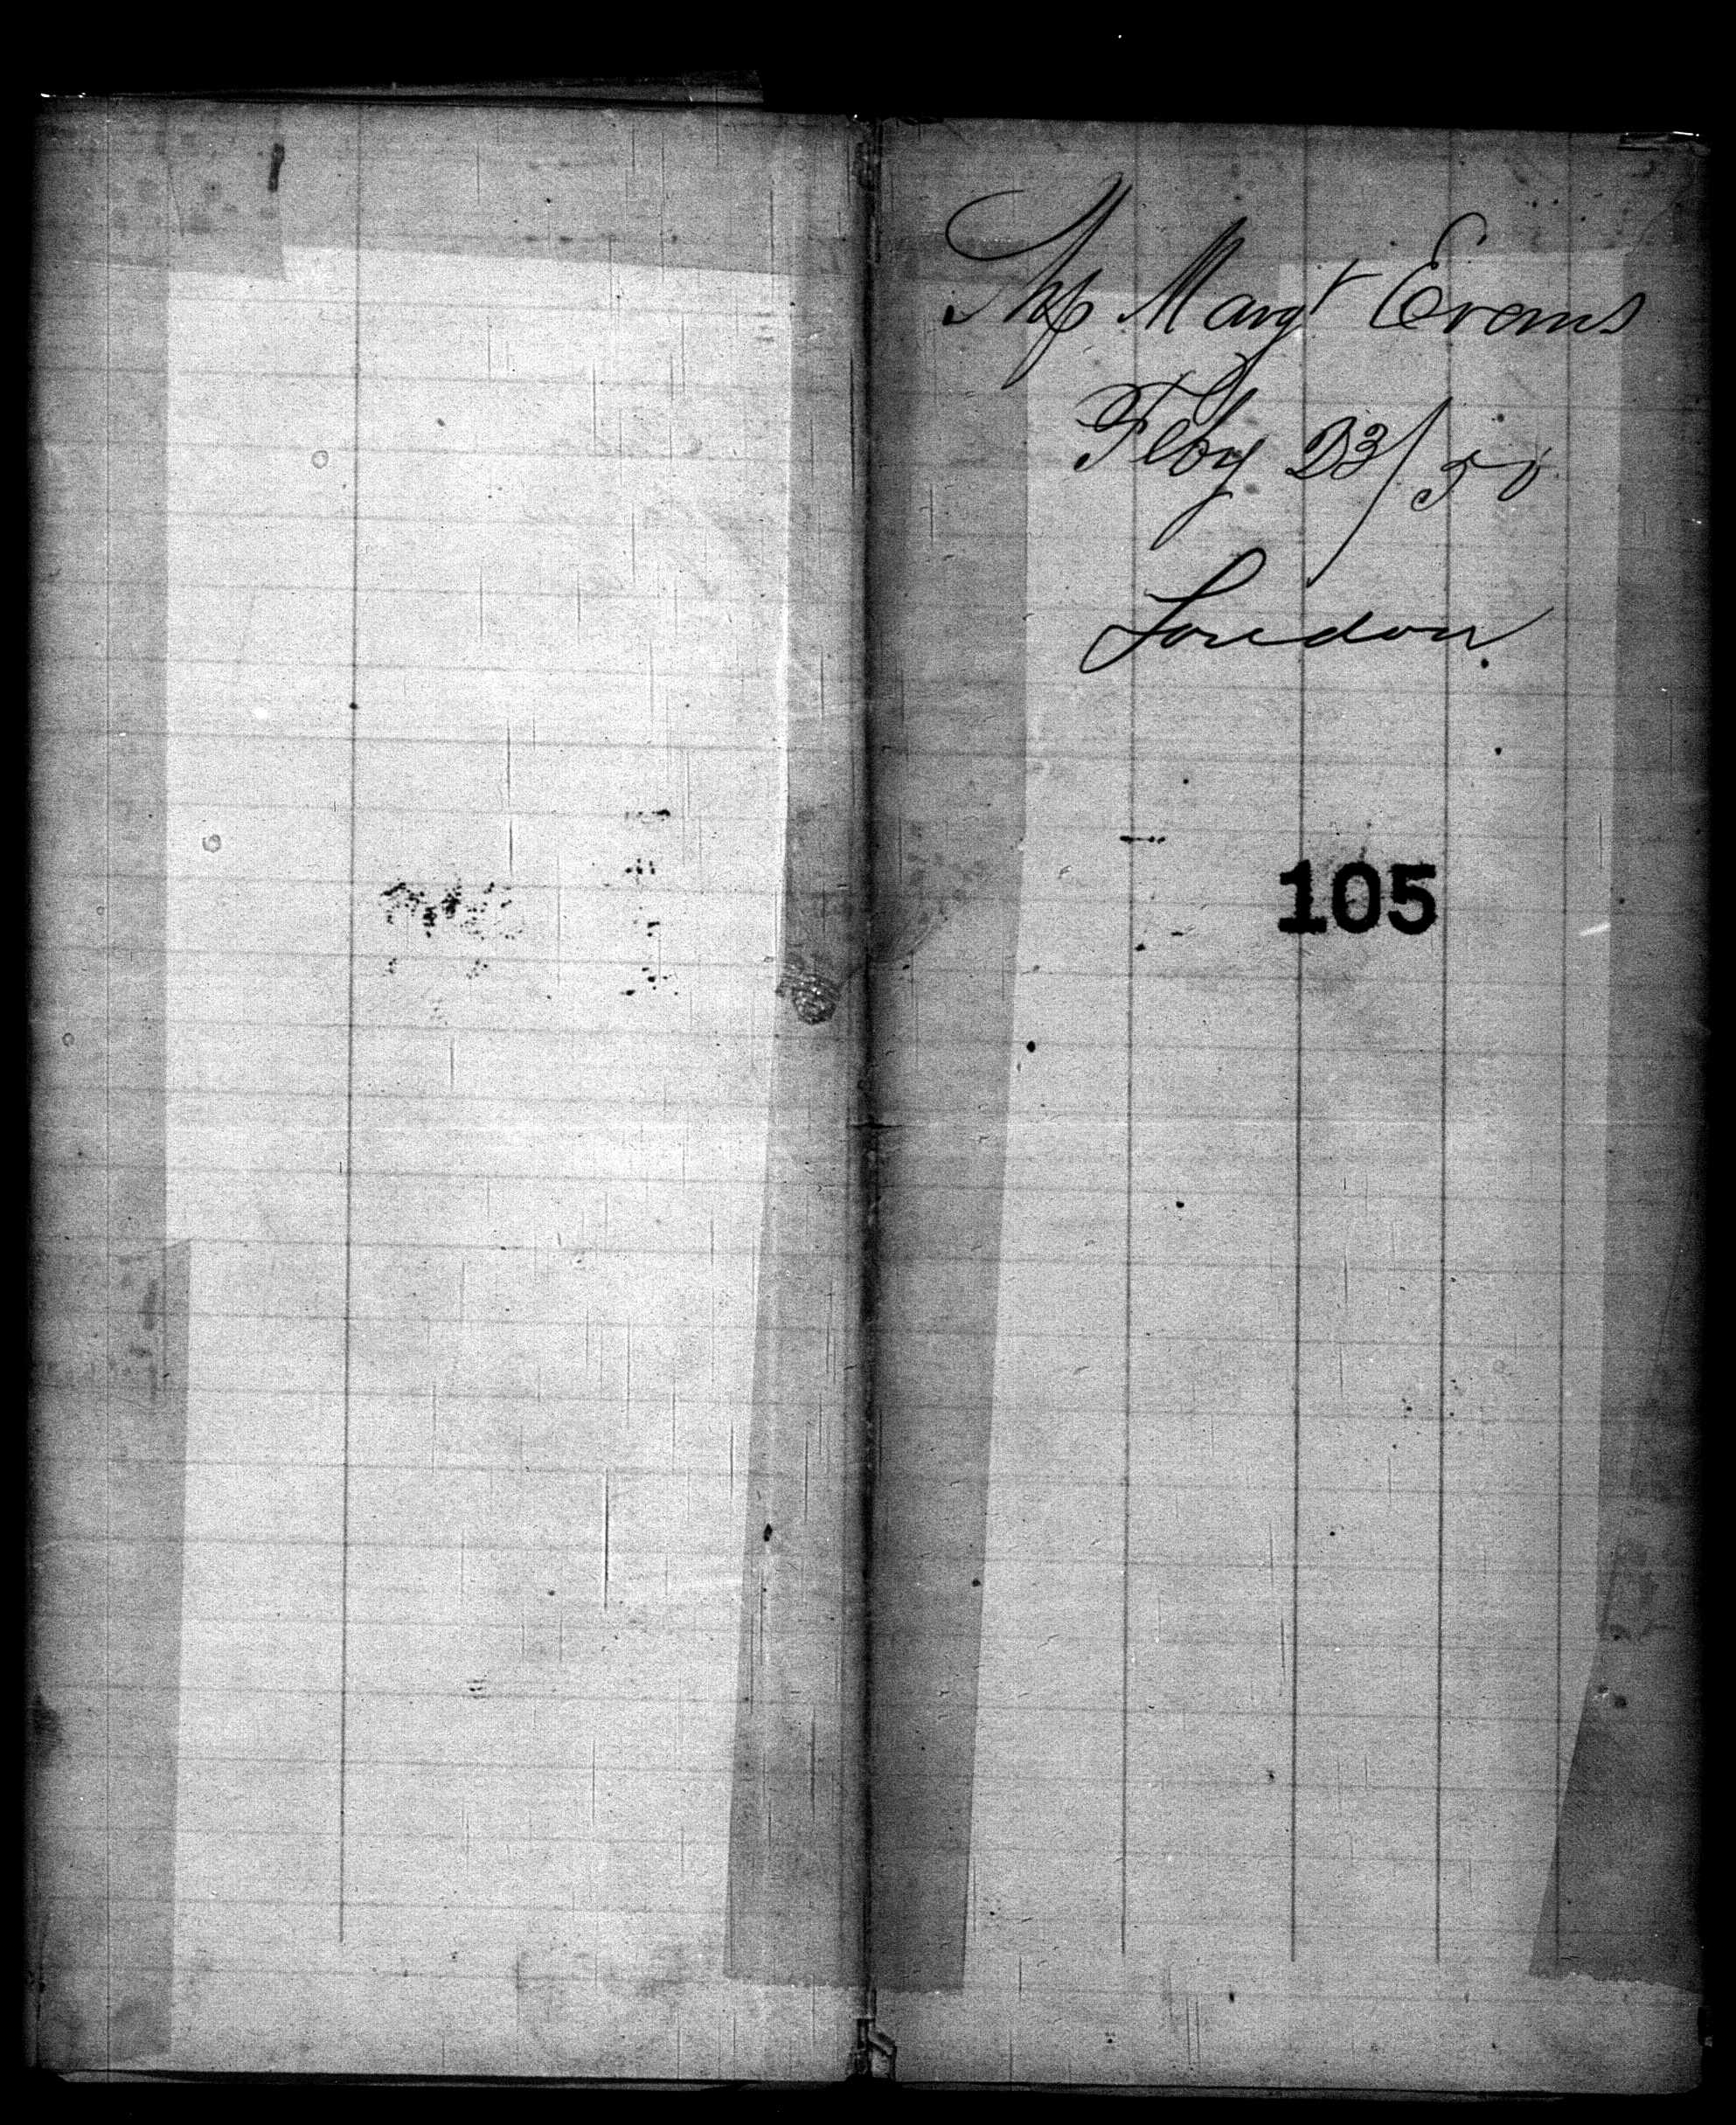 Shp Margt Evans
Feby 23/50
London
105